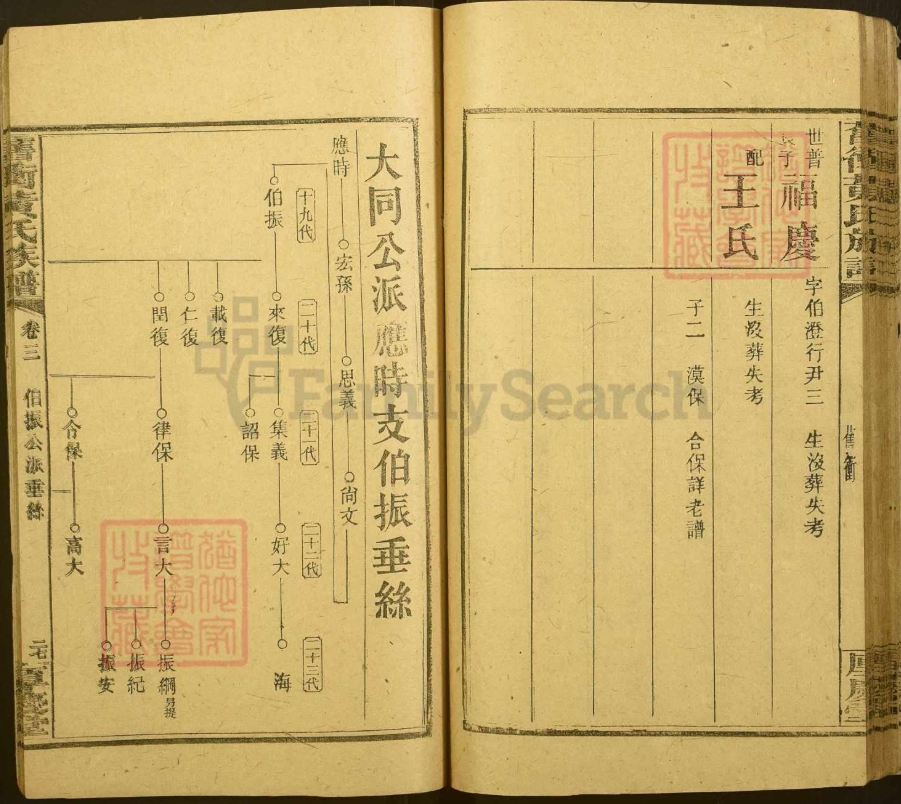 世普
子
福慶
字伯澄行尹三 生沒葬失考
配
王氏
生沒葬失考
子二 漠保 合保詳老譜
舊衝
大同公派應時支伯振垂絲
應時
宏孫
思義
尚文
十九代
二十代
二十一代
二十二代
二十三代
伯振
來復
集義
好大
海
詔保
載復
仁復
閏復
律保
言大
振綱另提
振紀
振安
令保
高大
舊衝黃氏族譜
卷三
伯振公派垂絲
二七
FamilySearch